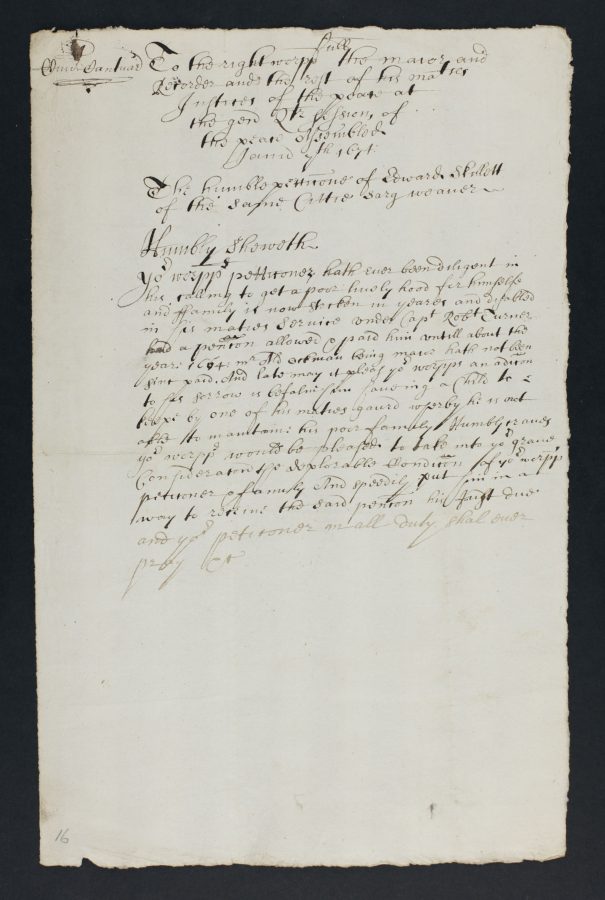 full
To the right worpp the maior and
Recorder and the rest of his maties
Justices of the peace at
the genll Qtr Session of
the peace Assembled
Januij 9th 1671
The humble petticone of Edward Skillett
of the same Cittie Sarg weaver
Humbly Sheweth
Yor worpps petticoner hath ever been diligent in
his calling to get a poor lively hood for himselfe
and ffamily is now stricken in yeares and disabled
in his maties service under Capt Robt Turner
had a pencon allowed & paid him untill about the
year: 1664: mr Ald ockman being maior hath not been
sinc paid. And late may it pleas yor worpps an adicon
to his sorrow is befalne him haveing a Child to
keepe by one of his maties gaurd wherby he is not
able to maintaine his poor family Humbly craves
yor worpps would be pleased to take into yor grave
Consideracon the deplorable Condicon of yor worpps
peticoner & family And speedily put him in a
way to receive the said pencon his Just due
and yor peticoner in all duty shal ever
pray &c
16